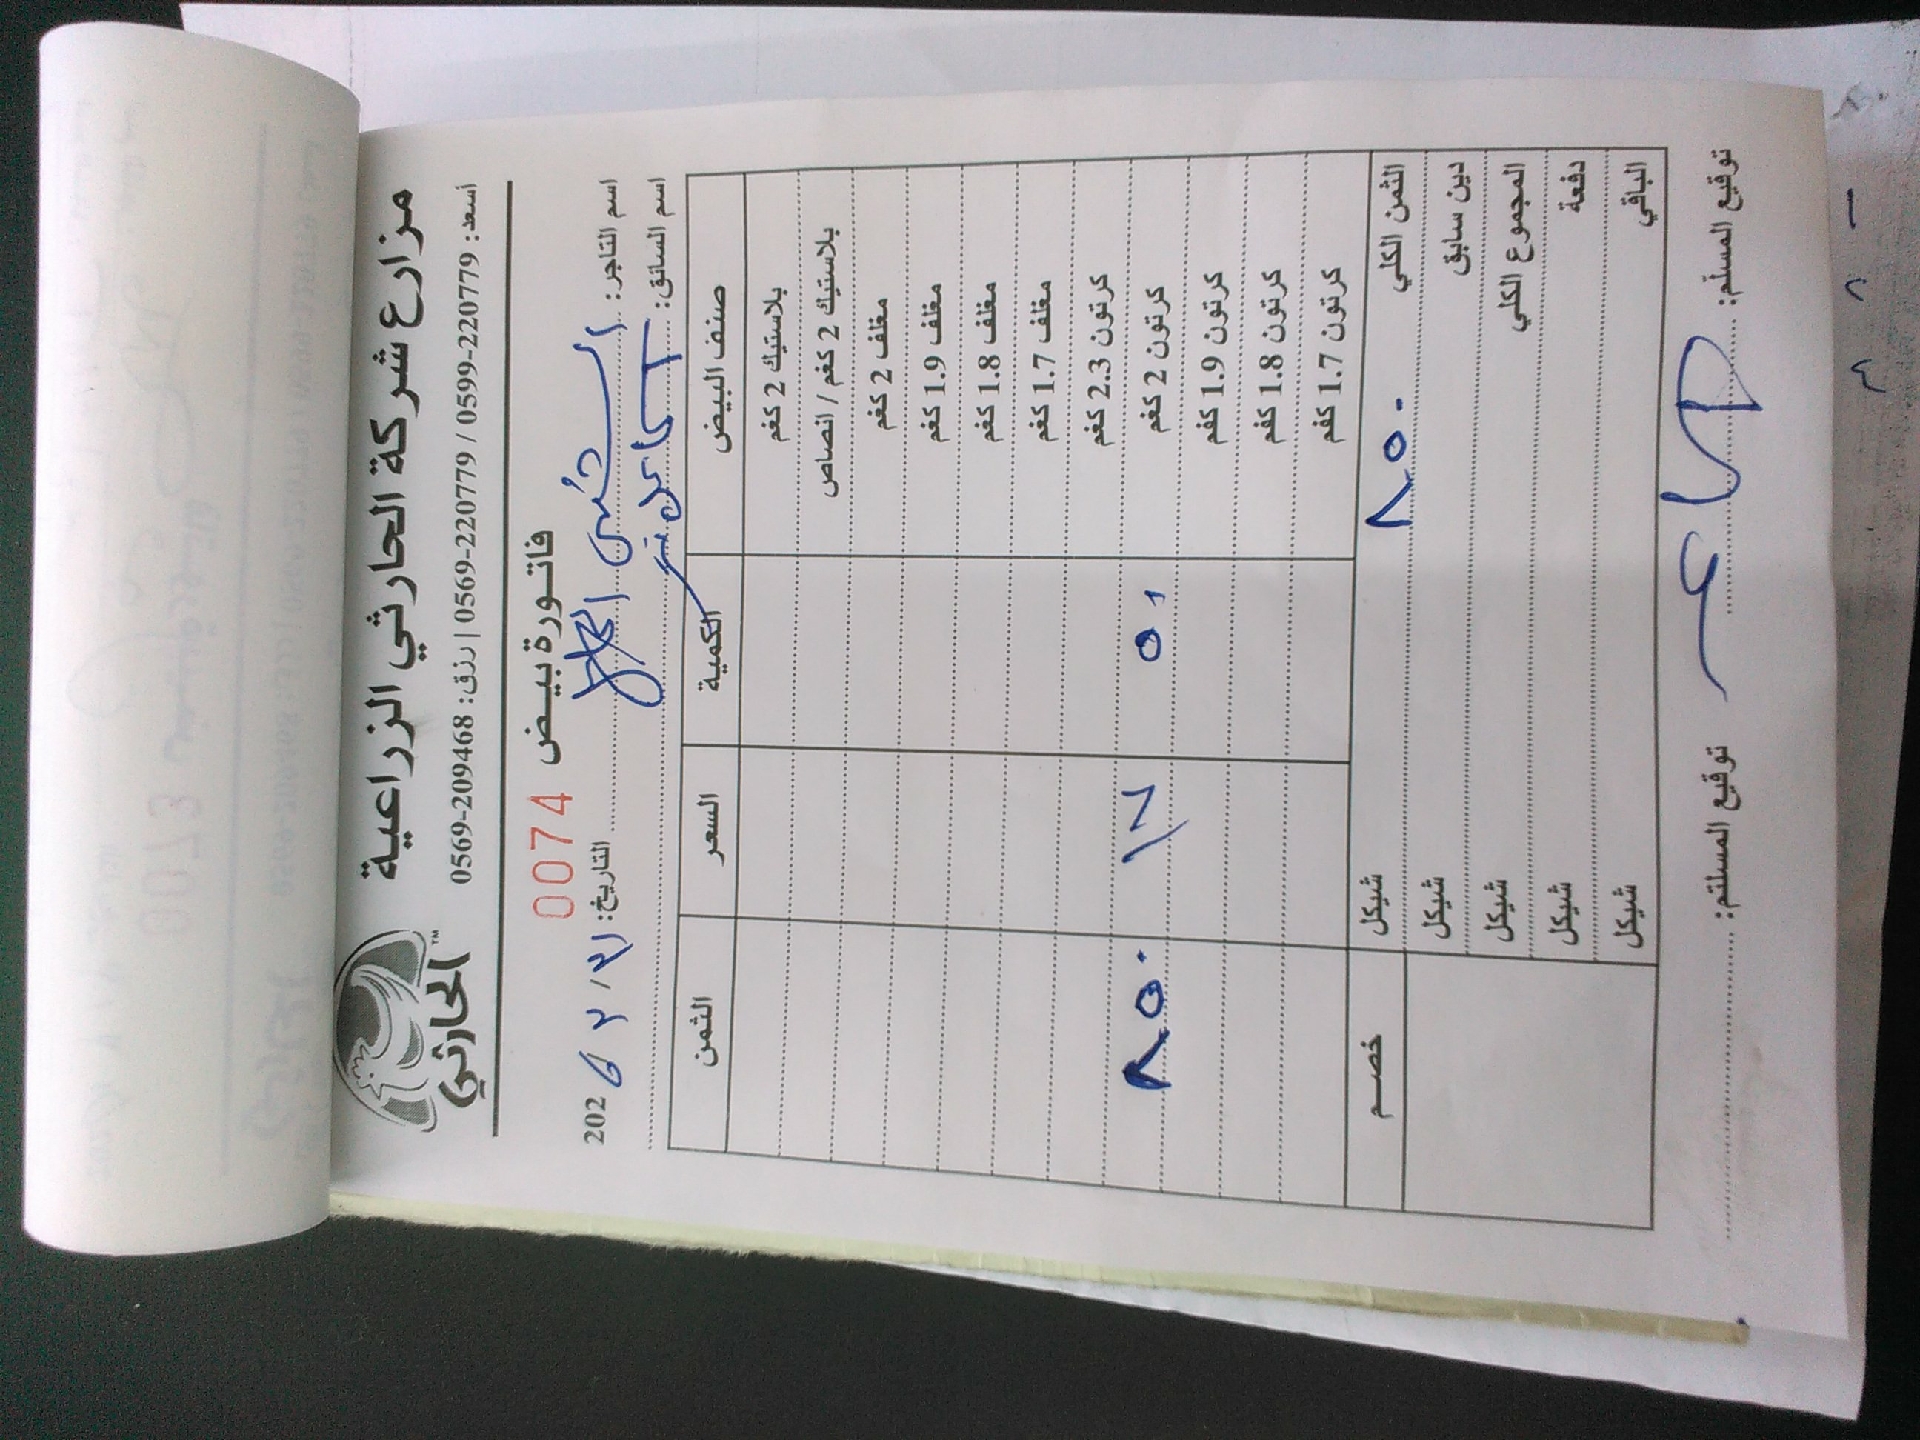 مزارع شركة الحارثي الزراعية
أسعد: 0599-220779 / 0569-220779 | رزق: 0569-209468
الحارثي™
فاتورة بيض 0074
اسم التاجر:
التاريخ: ٢١ / ٢ / 202
اسم السائق:
صنف البيض الكمية السعر الثمن
بلاستيك 2 كغم
بلاستيك 2 كغم / انصاص
مغلف 2 كغم
مغلف 1.9 كغم
مغلف 1.8 كغم
مغلف 1.7 كغم
كرتون 2.3 كغم
كرتون 2 كغم ٥٠ ١٧ ٨٥٠
كرتون 1.9 كغم
كرتون 1.8 كغم
كرتون 1.7 كغم
الثمن الكلي ٨٥٠ شيكل خصم
دين سابق شيكل
المجموع الكلي شيكل
دفعة شيكل
الباقي شيكل
توقيع المسلّم: توقيع المستلم: